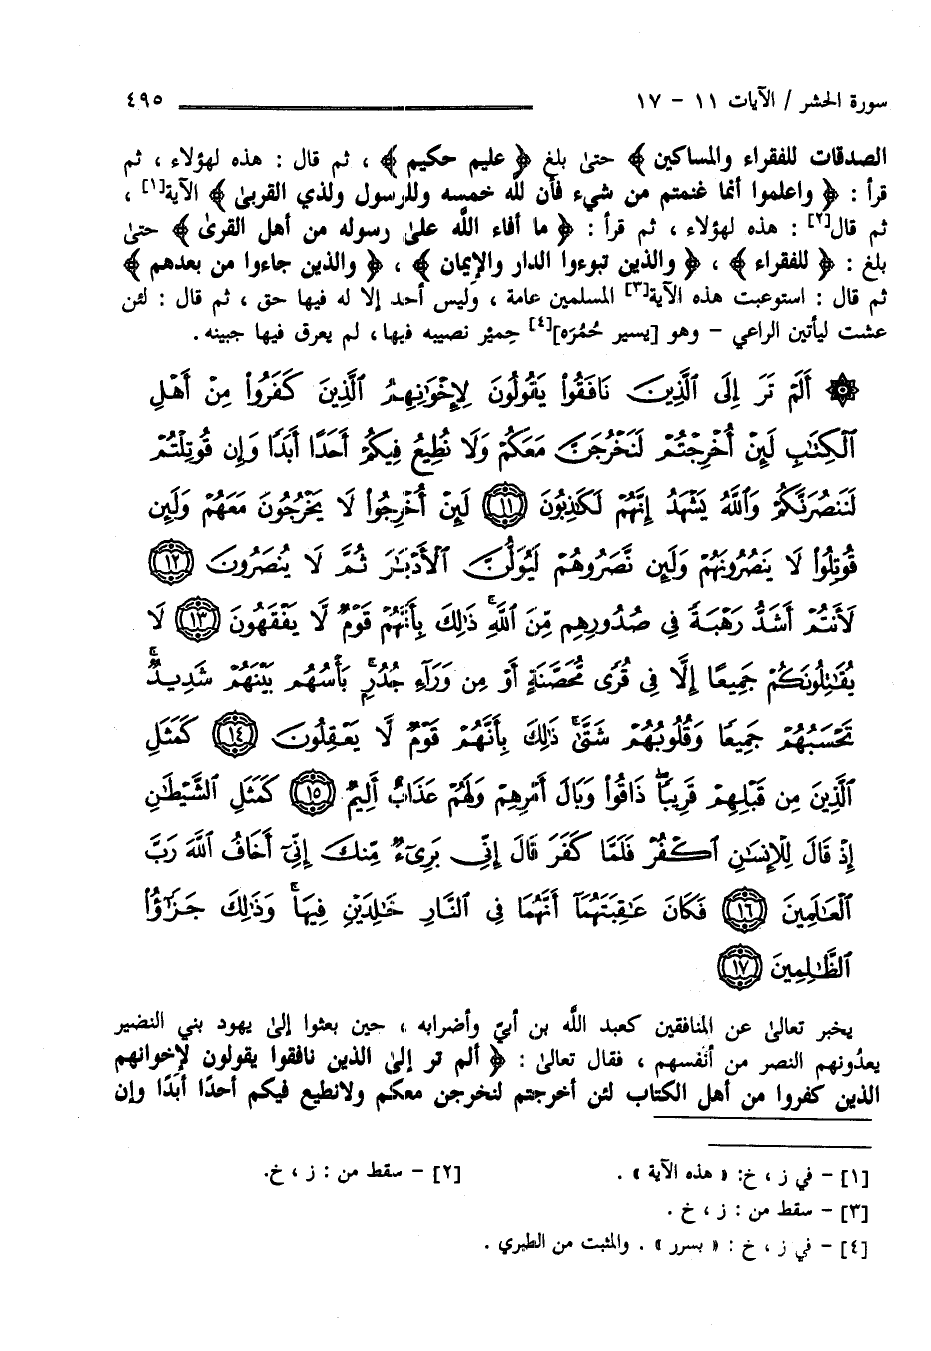 سورة الحشر / الآيات ١١ - ١٧ ٤٩٥
الصدقات للفقراء والمساكين ﴾ حتىٰ بلغ ﴿ عليم حكيم ﴾ ، ثم قال : هذه لهؤلاء ، ثم
قرأ : ﴿ واعلموا أنما غنمتم من شيء فأن للَّه خمسه وللرسول ولذي القربىٰ ﴾ الآية[١] ،
ثم قال[٢] : هذه لهؤلاء ، ثم قرأ : ﴿ ما أفاء اللَّه علىٰ رسوله من أهل القرىٰ ﴾ حتىٰ
بلغ : ﴿ للفقراء ﴾ ، ﴿ والذين تبوءوا الدار والإيمان ﴾ ، ﴿ والذين جاءوا من بعدهم ﴾
ثم قال : استوعبت هذه الآية[٣] المسلمين عامة ، وليس أحد إلا له فيها حق ، ثم قال : لئن
عشت ليأتين الراعي - وهو [يسير حُمُرَه][٤] حِمْيَر نصيبه فيها، لم يعرق فيها جبينه .
۞ أَلَمْ تَرَ إِلَى ٱلَّذِينَ نَافَقُوا۟ يَقُولُونَ لِإِخْوَٰنِهِمُ ٱلَّذِينَ كَفَرُوا۟ مِنْ أَهْلِ
ٱلْكِتَٰبِ لَئِنْ أُخْرِجْتُمْ لَنَخْرُجَنَّ مَعَكُمْ وَلَا نُطِيعُ فِيكُمْ أَحَدًا أَبَدًا وَإِن قُوتِلْتُمْ
لَنَنصُرَنَّكُمْ وَٱللَّهُ يَشْهَدُ إِنَّهُمْ لَكَٰذِبُونَ ١١ لَئِنْ أُخْرِجُوا۟ لَا يَخْرُجُونَ مَعَهُمْ وَلَئِن
قُوتِلُوا۟ لَا يَنصُرُونَهُمْ وَلَئِن نَّصَرُوهُمْ لَيُوَلُّنَّ ٱلْأَدْبَٰرَ ثُمَّ لَا يُنصَرُونَ ١٢
لَأَنتُمْ أَشَدُّ رَهْبَةً فِى صُدُورِهِم مِّنَ ٱللَّهِ ۚ ذَٰلِكَ بِأَنَّهُمْ قَوْمٌ لَّا يَفْقَهُونَ ١٣ لَا
يُقَٰتِلُونَكُمْ جَمِيعًا إِلَّا فِى قُرًى مُّحَصَّنَةٍ أَوْ مِن وَرَآءِ جُدُرٍۭ ۚ بَأْسُهُم بَيْنَهُمْ شَدِيدٌ ۚ
تَحْسَبُهُمْ جَمِيعًا وَقُلُوبُهُمْ شَتَّىٰ ۚ ذَٰلِكَ بِأَنَّهُمْ قَوْمٌ لَّا يَعْقِلُونَ ١٤ كَمَثَلِ
ٱلَّذِينَ مِن قَبْلِهِمْ قَرِيبًا ۖ ذَاقُوا۟ وَبَالَ أَمْرِهِمْ وَلَهُمْ عَذَابٌ أَلِيمٌ ١٥ كَمَثَلِ ٱلشَّيْطَٰنِ
إِذْ قَالَ لِلْإِنسَٰنِ ٱكْفُرْ فَلَمَّا كَفَرَ قَالَ إِنِّى بَرِىٓءٌ مِّنكَ إِنِّىٓ أَخَافُ ٱللَّهَ رَبَّ
ٱلْعَٰلَمِينَ ١٦ فَكَانَ عَٰقِبَتَهُمَآ أَنَّهُمَا فِى ٱلنَّارِ خَٰلِدَيْنِ فِيهَا ۚ وَذَٰلِكَ جَزَٰٓؤُا۟
ٱلظَّٰلِمِينَ ١٧
يخبر تعالىٰ عن المنافقين كعبد اللَّه بن أبيّ وأضرابه ، حين بعثوا إلىٰ يهود بني النضير
يعدُونهم النصر من أنفسهم ، فقال تعالىٰ : ﴿ ألم تر إلىٰ الذين نافقوا يقولون لإخوانهم
الذين كفروا من أهل الكتاب لئن أخرجتم لنخرجن معكم ولانطيع فيكم أحدًا أبدًا وإن
[١] - في ز ، خ: « هذه الآية » . [٢] - سقط من : ز ، خ.
[٣] - سقط من : ز ، خ .
[٤] - في ز ، خ : « بسرر » . والمثبت من الطبري .